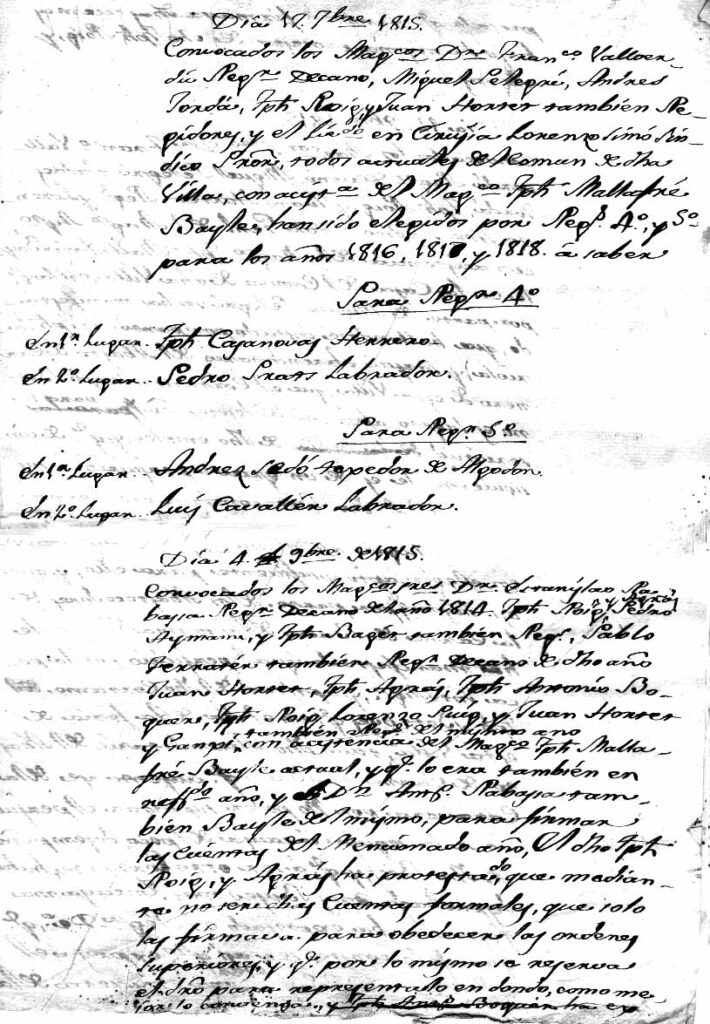 Dia 17. 7bre. 1815.
Convocados los Magcos Drs. Franco. Vallver-
dú Regr. Decano, Miguel Seregré, Andres
Tordá, Iph Roig, y Juan Horter tambien Re-
gidores, y el Lirdo en Cirujia Lorenzo Simó Sin-
dico Pror. todos actuales del Comun de dha
Villa, con acista. del Magco Iph Mallafré
Bayle, han sido elegidos por Regs. 4º., y 5º.
para los años 1816, 1817, y 1818. á saber
Para Regr. 4º
En 1r. Lugar.. Iph Casanovas Herrero.
En 2º. Lugar.. Pedro Prats Labrador.
Para Regr. 5º
En 1r. Lugar. Andrez Sedó texedor de Algodon.
En 2º. Lugar. Luis Cavallér Labrador.
Dia 4 9bre. de 1815.
Convocados los Dn. Estanislao Ra-
basa Regr. Decano del año 1814. Iph Roig, Pedro
Aymami, y Iph Bagés tambien Regs., Pablo
Ferratér tambien Regr. Decano de dho año
Juan Horter, Iph Agrás, Iph Antonio Bo-
quer, Iph Roig, Lorenzo Puig, y Juan Horter
tambien del mismo año
y Ganpi, con acistencia del Magco Iph Malla-
fré Bayle actual, y q. lo era tambien en
año, y Dn. Anto. Rabasa tam-
bien Bayle del mismo, para firmar
las Cuentas del Mencionado año, el dho Iph
Roig, y Agrás ha protestado, que median-
te no ser Cuentas formales, que solo
las firmava para obedecer las ordenes
superiores, y q. por lo mismo se reserva
el dro para representarlo en dondo, como me-
jor lo convenga, y Iph Anto. Boquér ha ex